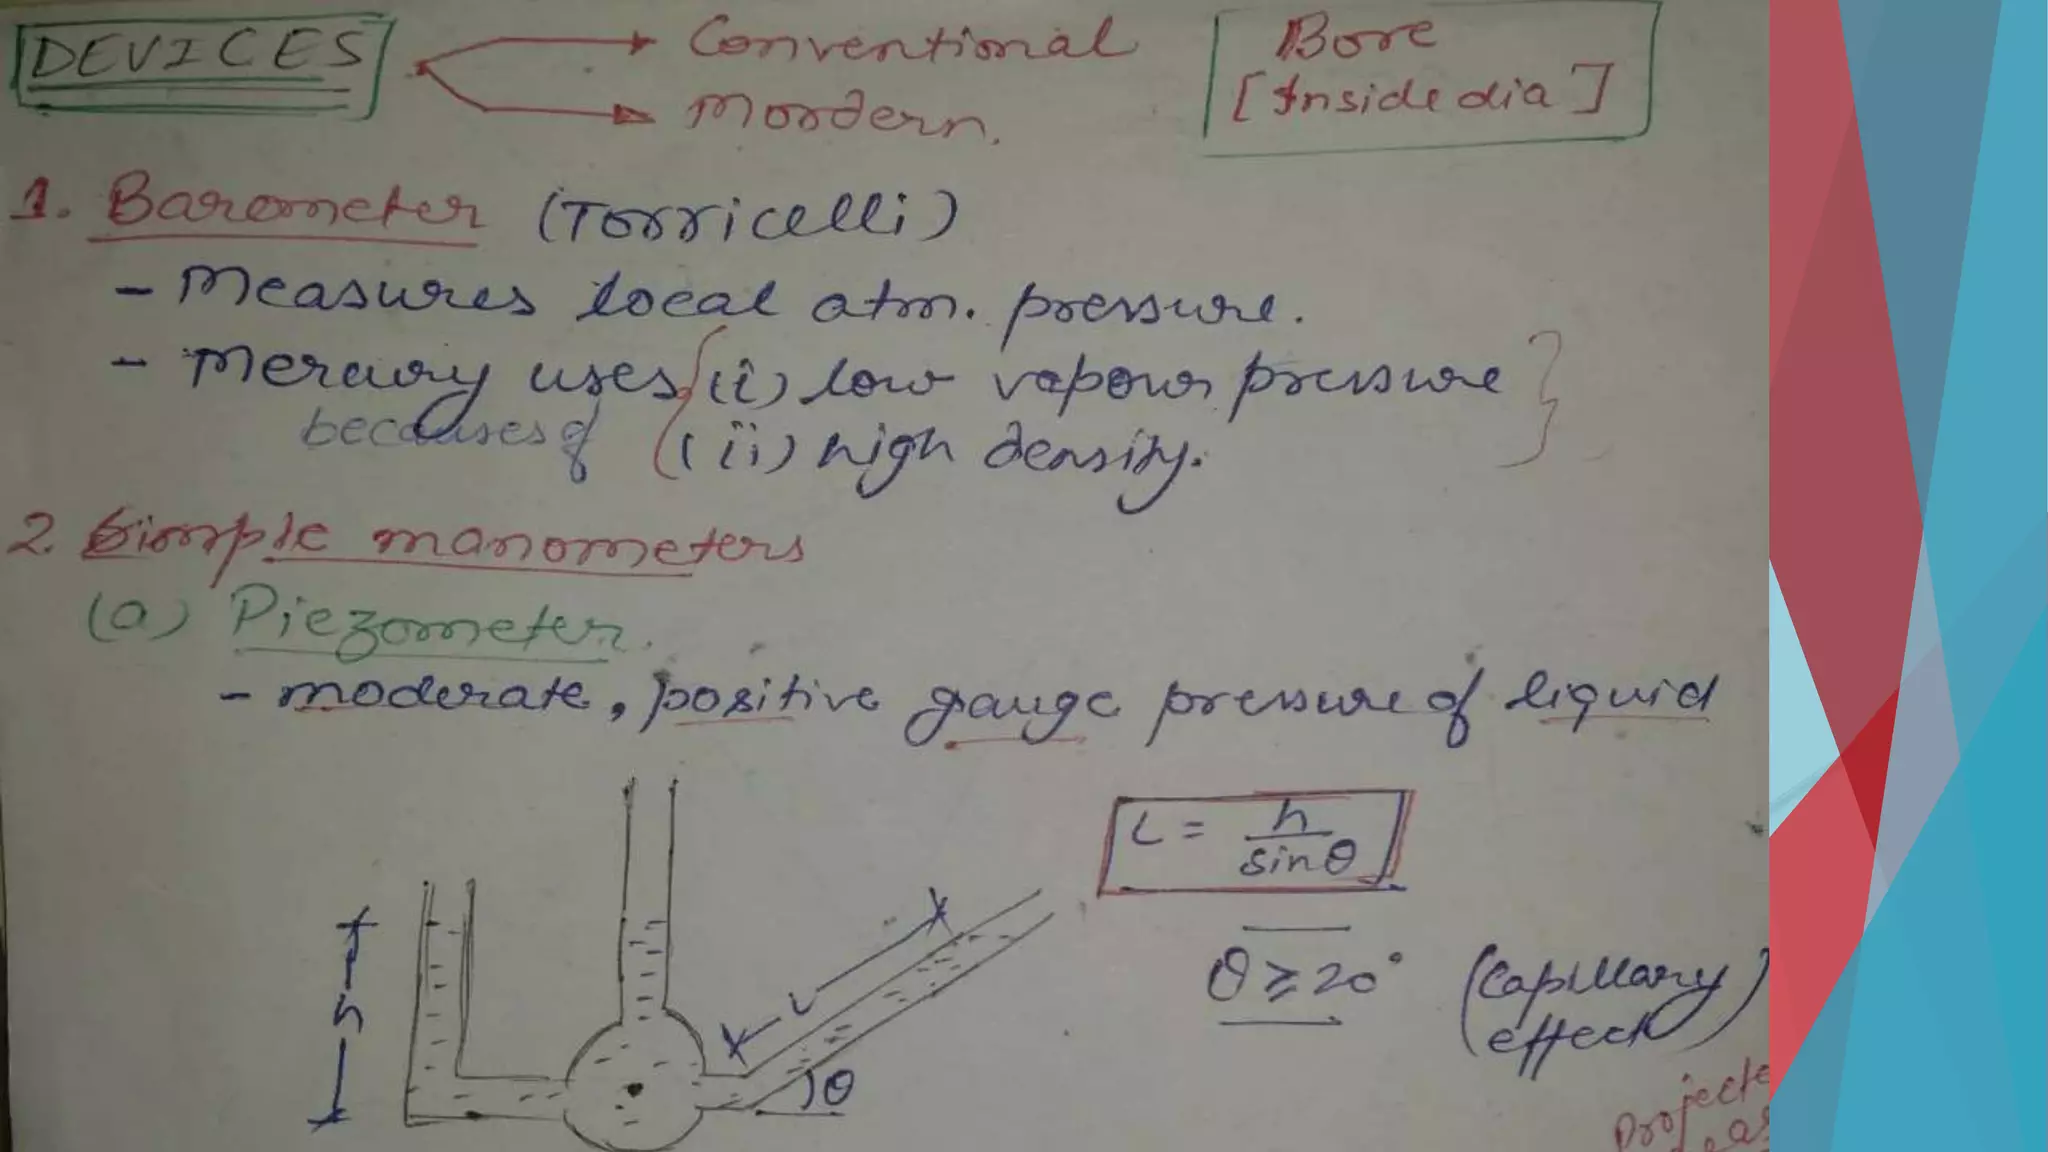 DEVICES
Conventional
Mordern.
Bore
[Inside dia]
1. Barometer (Torricelli)
- Measures local atm. pressure.
- Mercury uses (i) low vapour pressure
becauses of (ii) high density.
2. Simple manometers
(a) Piezometer.
- moderate, positive gauge pressure of liquid
L = h
sinθ
h
L
θ
θ ≥ 20° (Capillary
effect)